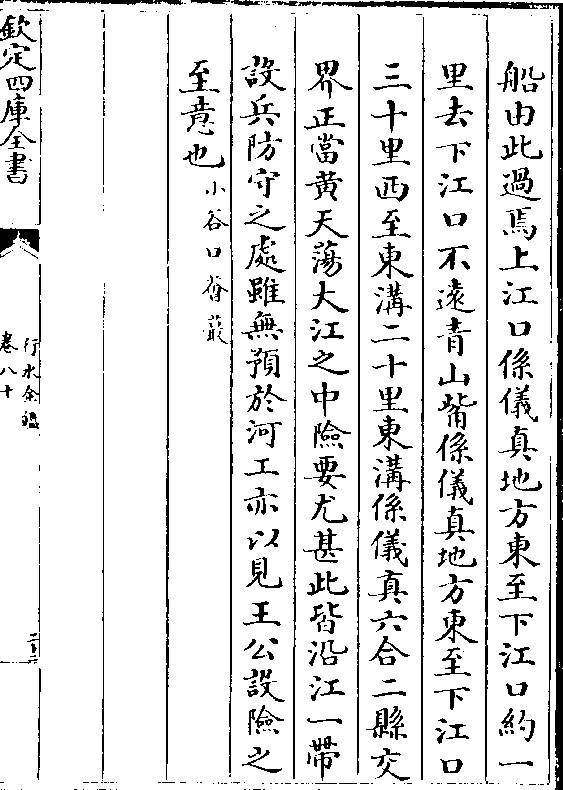 船由此過焉上江口係儀真地方東至下江口約一
里去下江口不遠青山觜係儀真地方東至下江口
三十里西至東溝二十里東溝係儀真六合二縣交
界正當黄天蕩大江之中險要尤甚此皆沿江一帶
設兵防守之處雖無預於河工亦以見王公設險之
至意也小谷口薈蕞
欽定四庫全書
行水金鑑
卷八十